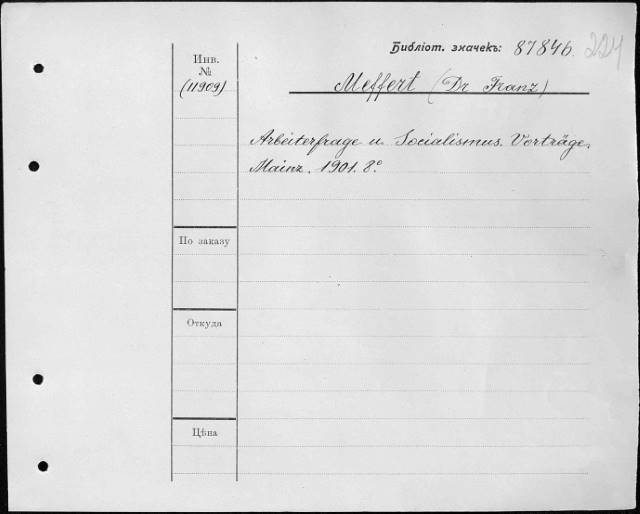 Библіот. значекъ: 87846. 224
Инв.
№
(11909)
Meffert (Dr Franz)
Arbeiterfrage u. Socialismus. Vorträge.
Mainz. 1901. 8º
По заказу
Откуда
Цѣна